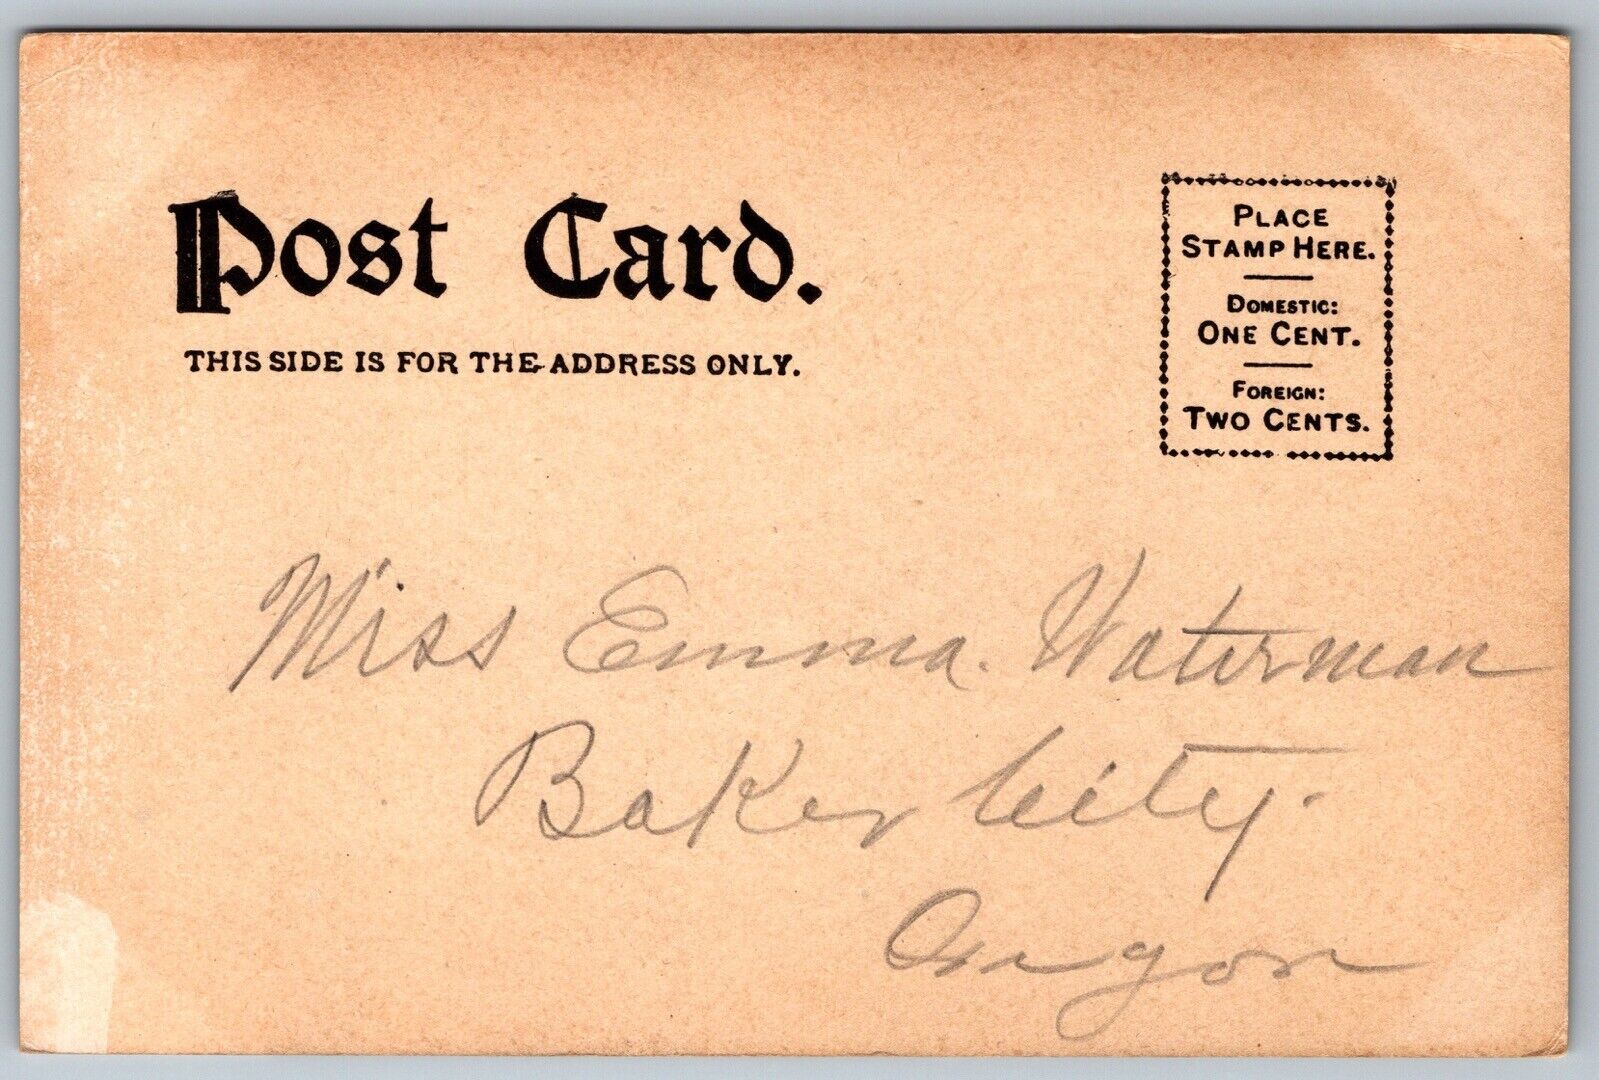 Post Card.
THIS SIDE IS FOR THE ADDRESS ONLY.
PLACE
STAMP HERE.
DOMESTIC:
ONE CENT.
FOREIGN:
TWO CENTS.
Miss Emma. Waterman
Baker City.
Oregon